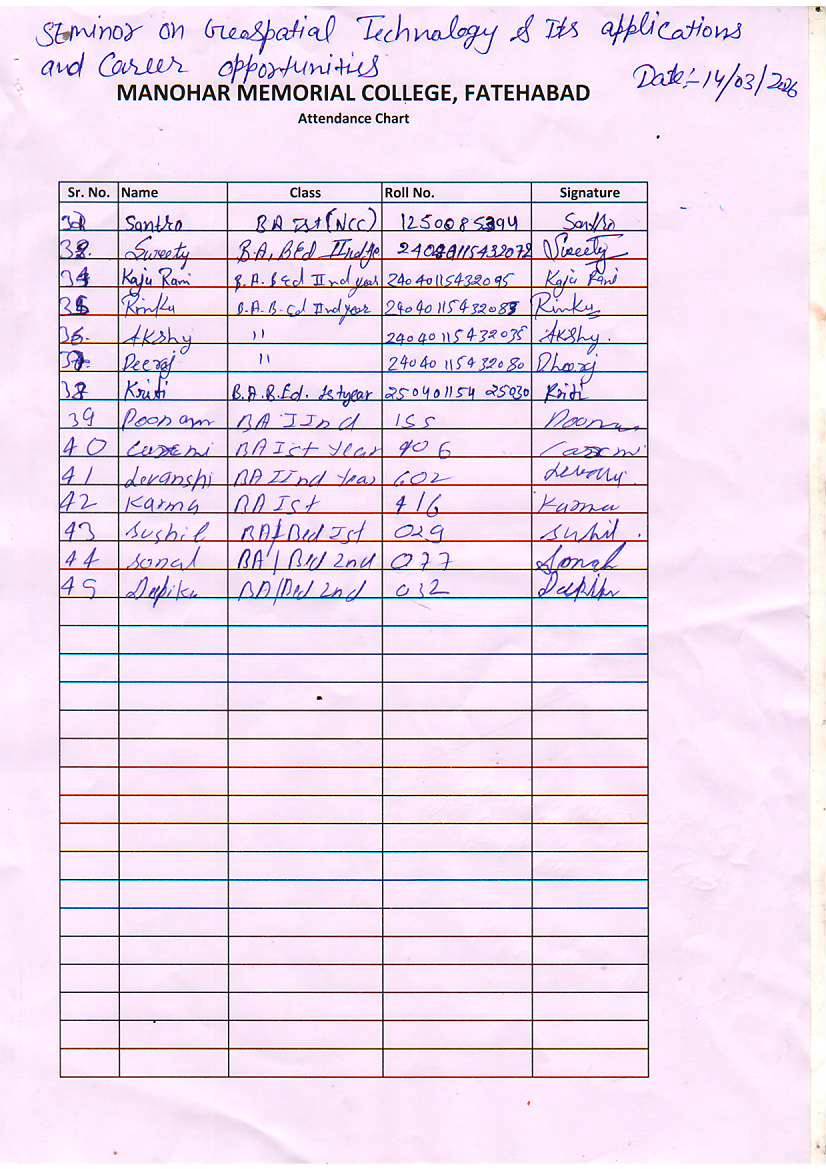 Seminar on Geospatial Technology & Its applications
and Career opportunities
Date:- 14/03/2026
MANOHAR MEMORIAL COLLEGE, FATEHABAD
Attendance Chart
Sr. No. Name Class Roll No. Signature
Santro BA Ist (NCC) Santro
Sweety B.A, BEd IInd Sweety
34 Kaju Rani B.A. Bed IInd year 24040115432095 Kaju Rani
35 Rinku B.A. B.ed IInd year Rinku
36. AKshy " 24040115432035 AKshy.
37. Deeraj " 24040115432080 Dheeraj
38 Kriti B.A.B.Ed. Ist year 25040115425030 Kriti
39 Poonam BA IInd 155 Poonam
40 BA Ist Year 406
41 Devanshi BA IInd Year 602
42 Karma BA Ist 416 Karma
43 Sushil BA/Bed Ist 029 Sushil.
44 Sonal BA/Bed 2nd 077 Sonal
45 Depika BA/Bed 2nd 032